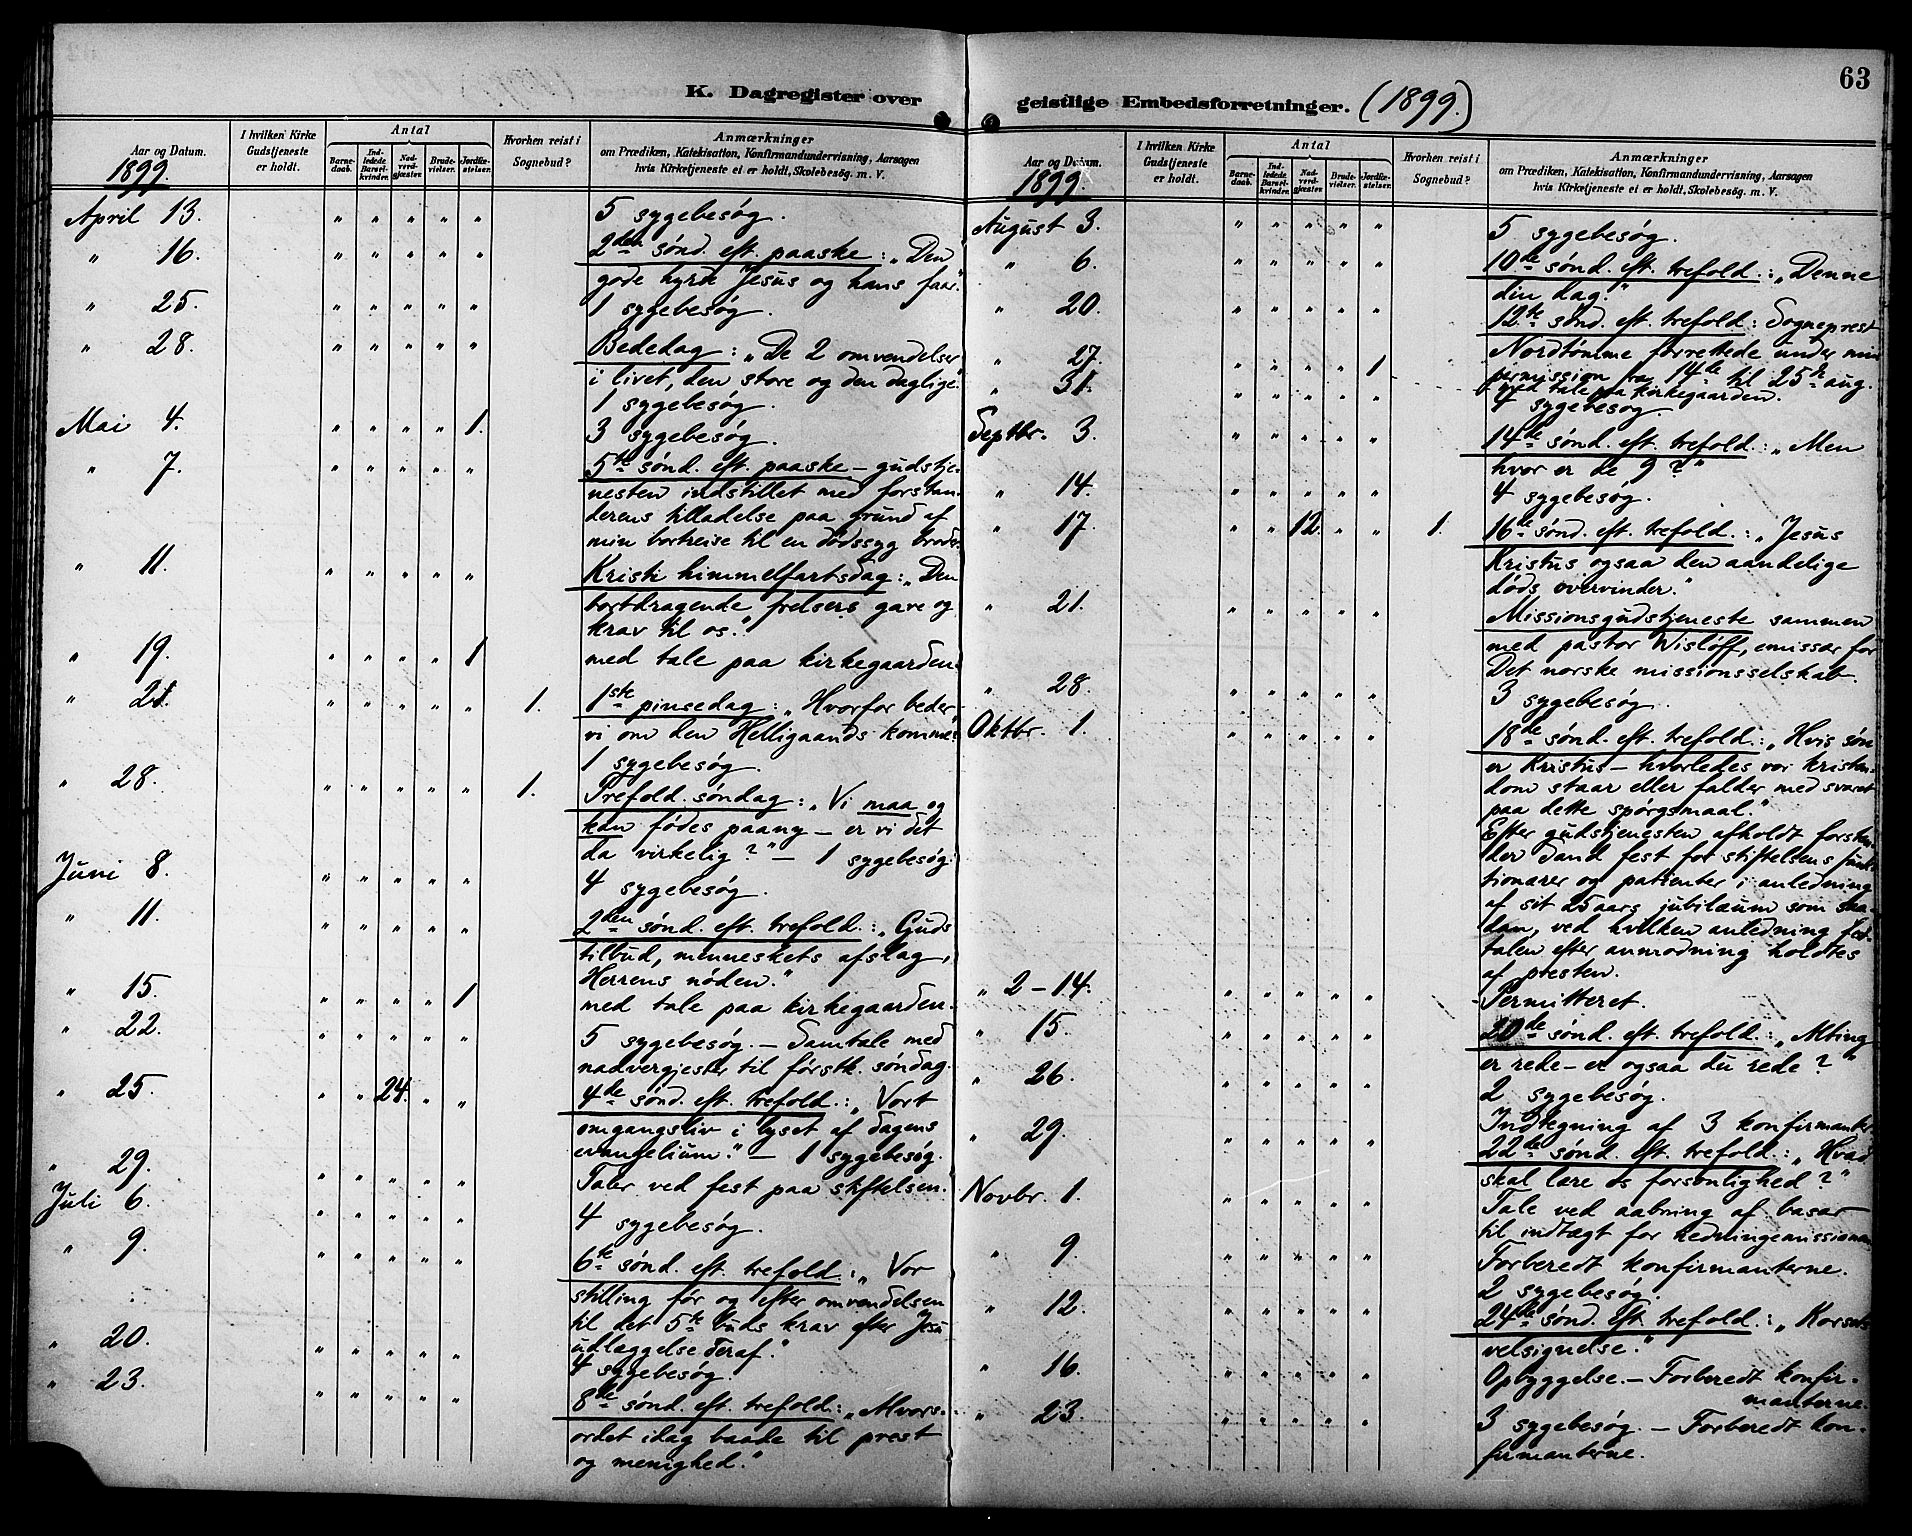 63
K. Dagregister over geistlige Embedsforretninger. (1899.)
Aar og Datum.
1899.
I hvilken Kirke Gudstjeneste er holdt.
Antal
Barnedaab.
Indledede Barselkvinder.
Nadverdgjæster.
Brudevielser.
Jordfæstelser.
Hvorhen reist i Sognebud?
Anmærkninger
om Prædiken, Katekisation, Konfirmandundervisning, Aarsagen
hvis Kirketjeneste ei er holdt, Skolebesøg. m. V.
April 13. " " " " " 5 sygebesøg.
" 16. " " " " " 2den sønd. eft. paaske: „Den
gode hyrde Jesus og hans faar."
" 25. " " " " " 1 sygebesøg.
" 28. " " " " " Bededag: „De 2 omvendelser
i livet, den store og den daglige."
1 sygebesøg.
Mai 4. " " " " 1. 3 sygebesøg.
" 7. " " " " " 5te sønd. eft. paaske – gudstje-
nesten indstillet med forstan-
derens tilladelse paa grund af
min bortreise til en dødssyg broder.
" 11. " " " " " Kristi himmelfartsdag: „Den
bortdragende frelsers gave og
krav til os."
" 19. " " " " 1 med tale paa kirkegaarden.
" 21. " " " " " 1. 1ste pinsedag: „Hvorfor beder
vi om den Helligaands komme?"
1 sygebesøg.
" 28. " " " " " 1. Trefold. søndag: „Vi maa og
kan fødes paany – er vi det
da virkelig?" – 1 sygebesøg.
Juni 8. " " " " " 4 sygebesøg.
" 11. " " " " " 2den sønd. eft. trefold.: „Guds
tilbud, menneskets afslag,
Herrens nøden."
" 15. " " " " 1 med tale paa kirkegaarden.
" 22. " " " " " 5 sygebesøg. – Samtale med
nadvergjester til førstk. søndag.
" 25. " " 24. " " 4de sønd. eft. trefold.: „Vort
omgangsliv i lyset af dagens
evangelium." – 1 sygebesøg.
" 29. " " " " " Taler ved fest paa stiftelsen.
Juli 6. " " " " " 4 sygebesøg.
" 9. " " " " " 6te sønd. eft. trefold.: „Vor
stilling før og efter omvendelsen
til det 5te buds krav efter Jesu
udlæggelse deraf."
" 20. " " " " " 4 sygebesøg.
" 23. " " " " " 8de sønd. eft. trefold.: „Alvors-
ordet idag baade til prest
og menighed."
Aar og Datum.
1899.
I hvilken Kirke Gudstjeneste er holdt.
Antal
Barnedaab.
Indledede Barselkvinder.
Nadverdgjæster.
Brudevielser.
Jordfæstelser.
Hvorhen reist i Sognebud?
Anmærkninger
om Prædiken, Katekisation, Konfirmandundervisning, Aarsagen
hvis Kirketjeneste ei er holdt, Skolebesøg. m. V.
August 3. " " " " " 5 sygebesøg.
" 6. " " " " " 10de sønd. eft. trefold.: „Denne
din dag."
" 20. " " " " " 12te sønd. eft. trefold: Sogneprest
Nordtømme forrettede under min
permission fra 14de til 25te aug.
" 27. " " " " 1 med tale paa kirkegaarden.
" 31. " " " " " 4 sygebesøg
Septbr. 3. " " " " " 14de sønd. eft. trefold: „Men
hvor er de 9?"
" 14. " " " " " 4 sygebesøg.
" 17. " " 12. " " 1. 16de sønd. eft. trefold.: „Jesus
Kristus ogsaa den aandelige
døds overvinder."
" 21. " " " " " Missionsgudstjeneste sammen
med pastor Wisløff, emissær for
Det norske missionsselskab.
" 28. " " " " " 3 sygebesøg.
Oktbr. 1. " " " " " 18de sønd. eft. trefold.: „Hvis søn
er Kristus – hvorledes vor kristen-
dom staar eller falder med svaret
paa dette spørgsmaal."
Efter gudstjenesten afholdt forstan-
der Sand fest for stiftelsens funk-
tionærer og patienter i anledning
af sit 25 aars jubilæum som saa-
dan, ved hvilken anledning fest-
talen efter anmodning holdtes
af presten.
" 2–14. " " " " " Permitteret.
" 15. " " " " " 20de sønd. eft. trefold.: „Alting
er rede – er ogsaa du rede?"
" 26. " " " " " 2 sygebesøg.
Indtegning af 3 konfirmanter
" 29. " " " " " 22de sønd. eft. trefold.: „Hvad
skal lære os forsonlighed?"
Novbr. 1. " " " " " Tale ved aabning af basar
til indtægt for hedningemissionen
" 9. " " " " " Forberedt konfirmanterne.
2 sygebesøg.
" 12. " " " " " 24de sønd. eft. trefold.: „Korsets
velsignelse."
" 16. " " " " " Opbyggelse. – Forberedt konfir-
manterne.
" 23. " " " " " 3 sygebesøg. – Forberedt kon-
firmanterne.